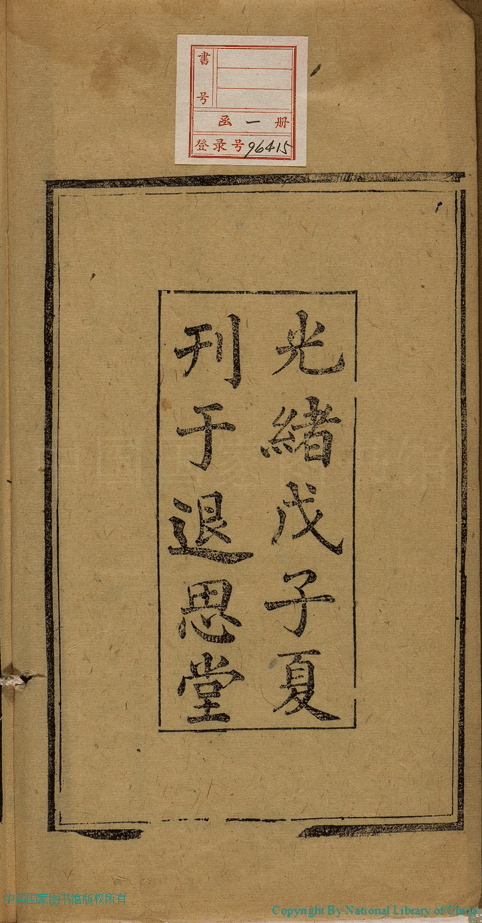 書号
函一册
登录号96415
光緒戊子夏
刊于退思堂
中国国家图书馆版权所有
Copyright By National Library of China